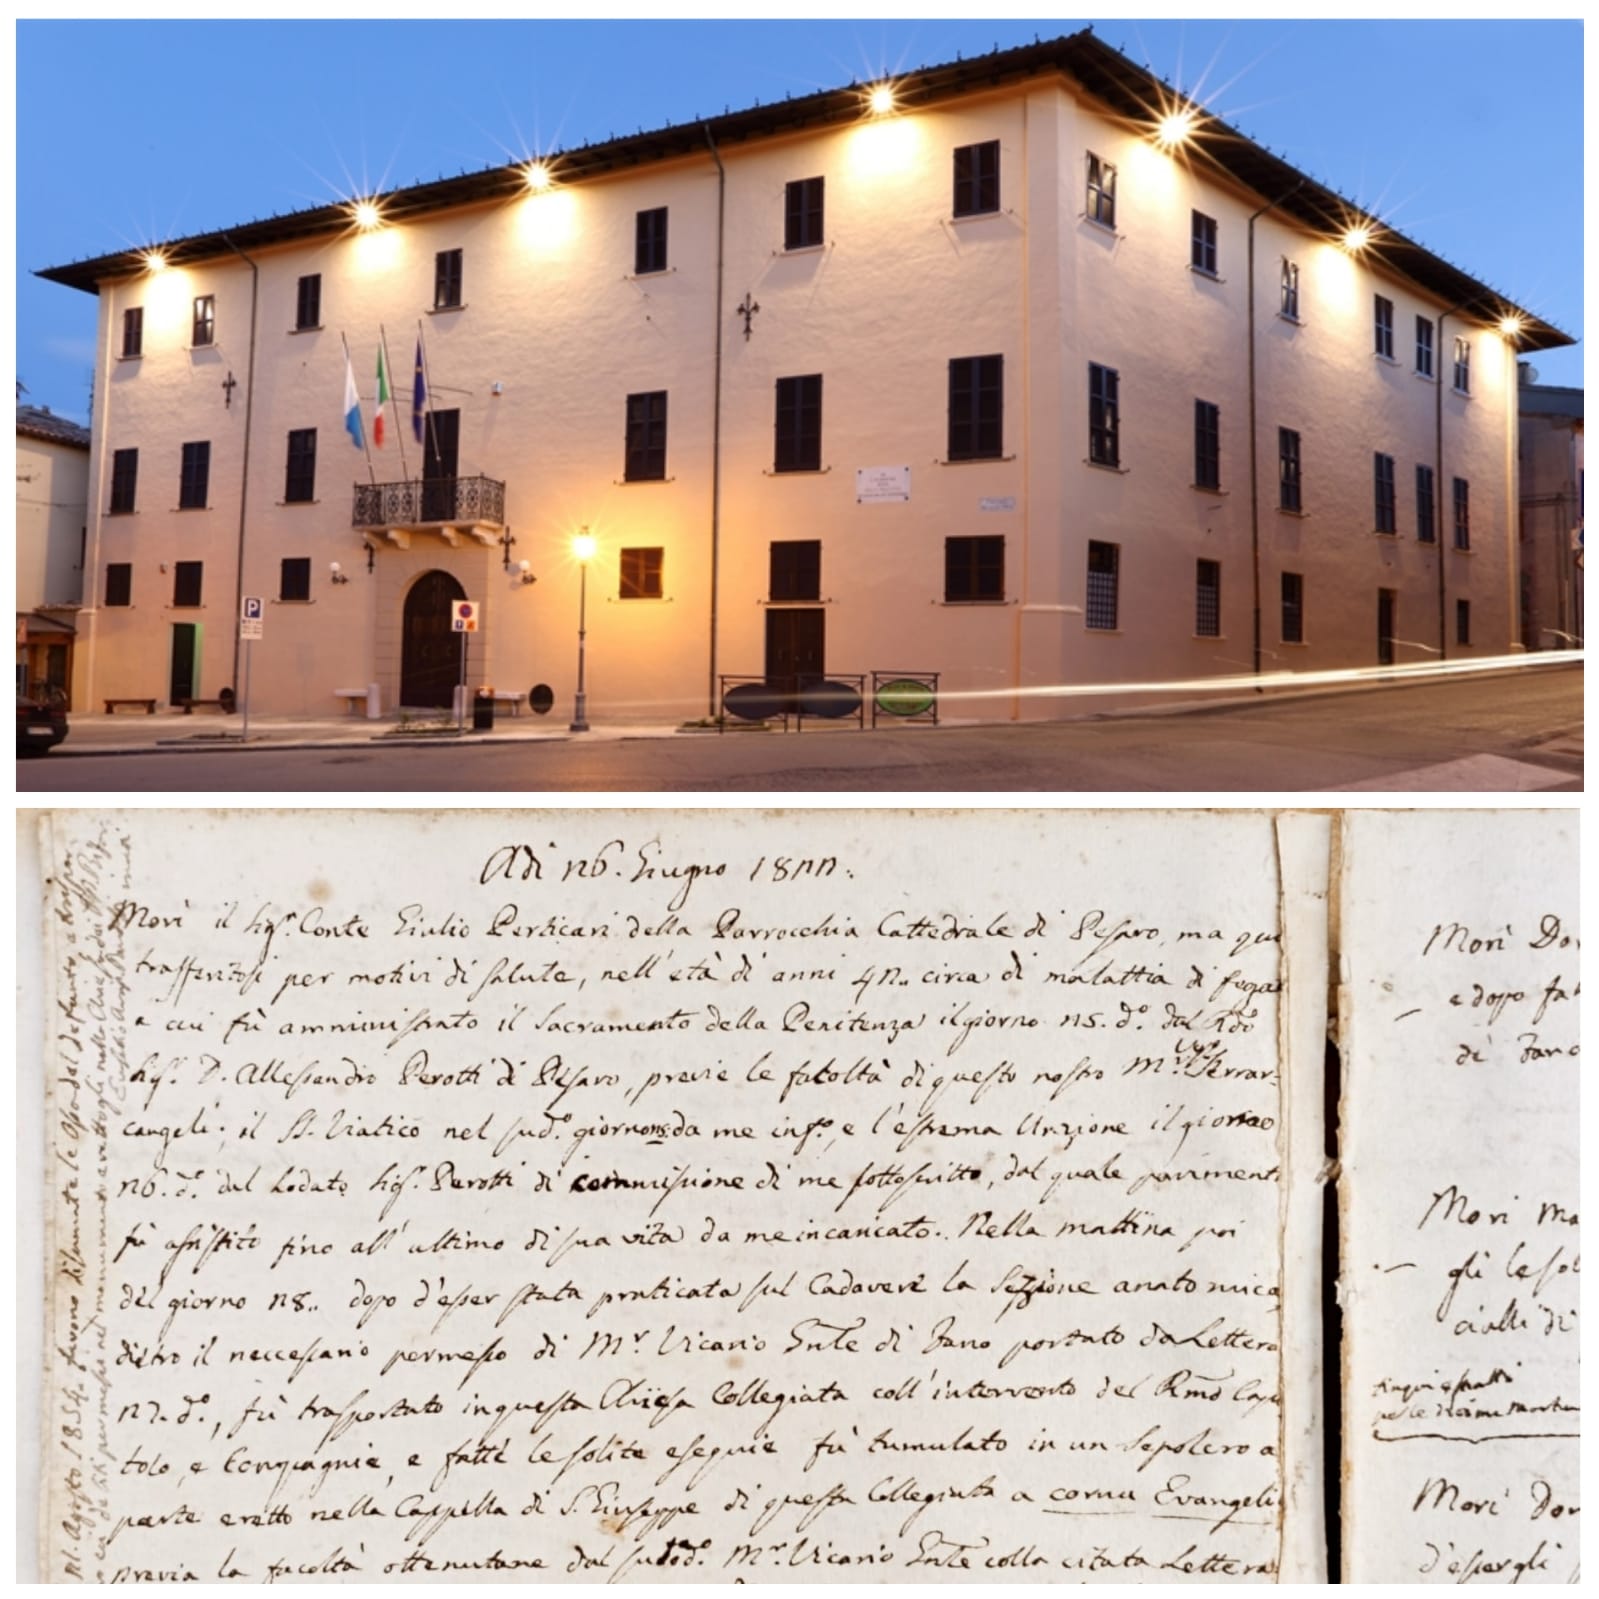 P
Adi 26. Giugno 1822.
Morì il Sigr. Conte Giulio Perticari della Parrocchia Cattedrale di Pesaro, ma qui
trasferitosi per motivi di salute, nell'età di anni 42.. circa di malattia di fegat
a cui fù amministrato il Sacramento della Penitenza il giorno 25. do. dal Rdo
Sigr. D. Allessandro Perotti di Pesaro, previe le facoltà di questo nostro Mr. Vico Serrar=
cangeli; il SS. Viatico nel sudo. giorno 25 da me info., e l'estrema Unzione il giorno
26. do. dal Lodato Sigr. Perotti di commissione di me sottoscritto, dal quale pariment
fù assistito fino all'ultimo di sua vita da me incaricato. Nella mattina poi
del giorno 28.. dopo d'esser stata praticata sul Cadavere la Sezione anatomica,
dietro il neccessario permesso di Mr. Vicario Gnle di Fano portato da Lettera
27. do., fù trasportato in questa Chiesa Collegiata coll'intervento del Rmo Capi
tolo, e Compagnie, e fatte le solite esequie fù tumulato in un Sepolcro a
parte eretto nella Cappella di S. Giuseppe di questa Collegiata a cornu Evangeli
previa la facoltà ottenutane dal sudo. Mr. Vicario Gnle colla citata Lettera
Agosto 1854 furono disumate le Ossa del defunto
Morì Do
e dopo fa
di Fano
Morì Ma
gli le sol
cialli di
Morì Don
d'essergli